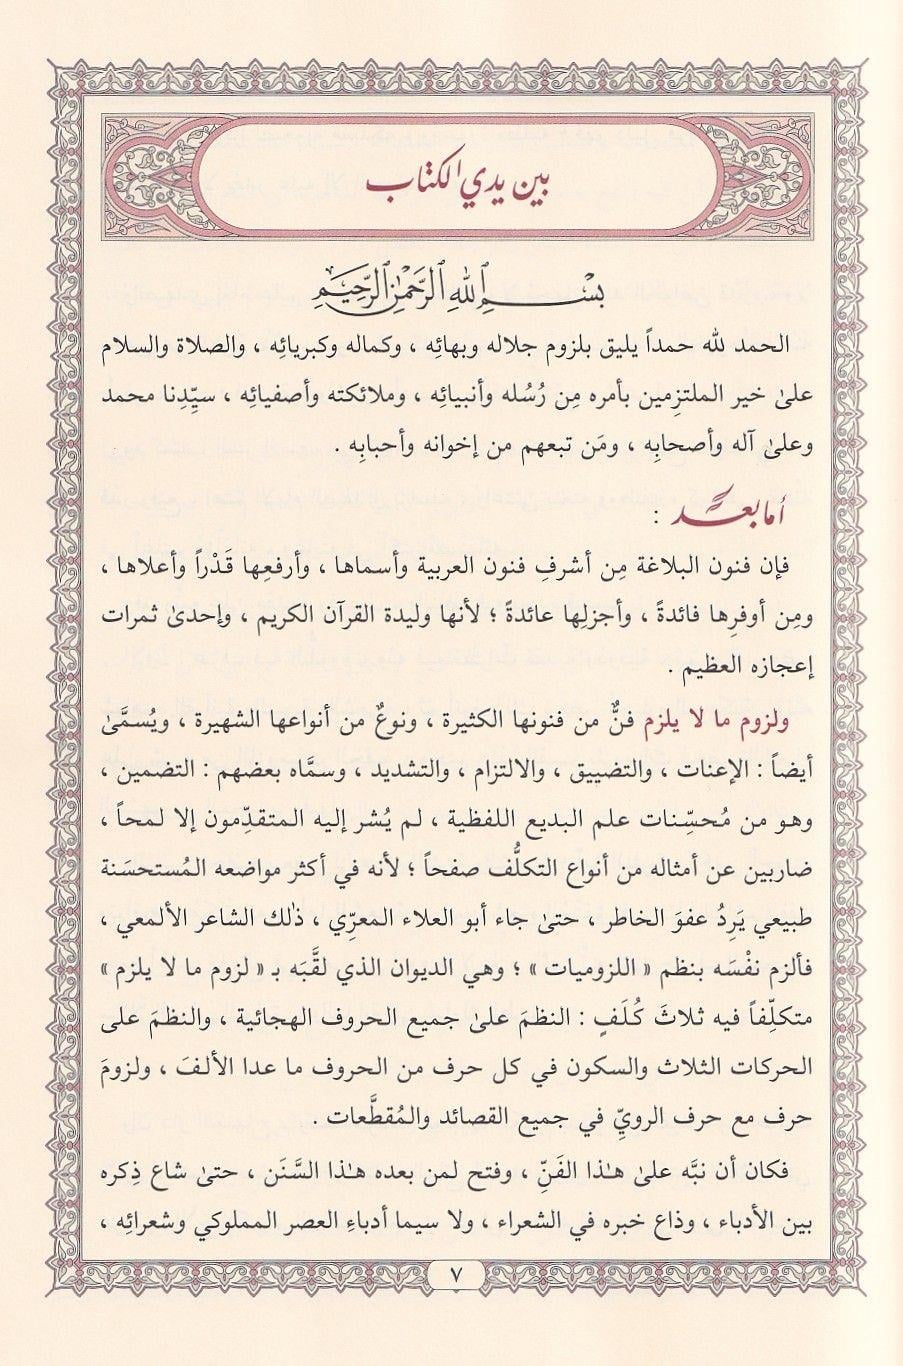 بين يدي الكتاب
بِسْمِ اللهِ الرَّحْمٰنِ الرَّحِيْمِ
الحمد لله حمداً يليق بلزوم جلاله وبهائِه ، وكماله وكبريائِه ، والصلاة والسلام
علىٰ خير الملتزِمين بأمره مِن رُسُله وأنبيائِه ، وملائكته وأصفيائِه ، سيِّدِنا محمد
وعلىٰ آله وأصحابِه ، ومَن تبعهم من إخوانه وأحبابِه .
أما بعـد :
فإن فنون البلاغة مِن أشرفِ فنون العربية وأسماها ، وأرفعِها قَدْراً وأعلاها ،
ومِن أوفرِها فائدةً ، وأجزلِها عائدةً ؛ لأنها وليدة القرآن الكريم ، وإحدىٰ ثمرات
إعجازه العظيم .
ولزوم ما لا يلزم فنٌّ من فنونها الكثيرة ، ونوعٌ من أنواعها الشهيرة ، ويُسمَّىٰ
أيضاً : الإعنات ، والتضييق ، والالتزام ، والتشديد ، وسمَّاه بعضهم : التضمين ،
وهو من مُحسِّنات علم البديع اللفظية ، لم يُشر إليه المتقدِّمون إلا لمحاً ،
ضاربين عن أمثاله من أنواع التكلُّف صفحاً ؛ لأنه في أكثر مواضعه المُستحسَنة
طبيعي يَرِدُ عفوَ الخاطر ، حتىٰ جاء أبو العلاء المعرِّي ، ذٰلك الشاعر الألمعي ،
فألزم نفْسَه بنظم « اللزوميات » ؛ وهي الديوان الذي لقَّبَه بـ « لزوم ما لا يلزم »
متكلِّفاً فيه ثلاثَ كُلَفٍ : النظمَ علىٰ جميع الحروف الهجائية ، والنظمَ على
الحركات الثلاث والسكون في كل حرف من الحروف ما عدا الألفَ ، ولزومَ
حرف مع حرف الرويِّ في جميع القصائد والمُقطَّعات .
فكان أن نبَّه علىٰ هـٰذا الفَنِّ ، وفتح لمن بعده هـٰذا السَّنَن ، حتىٰ شاع ذِكره
بين الأدباء ، وذاع خبره في الشعراء ، ولا سيما أدباءِ العصر المملوكي وشعرائِه ،
٧